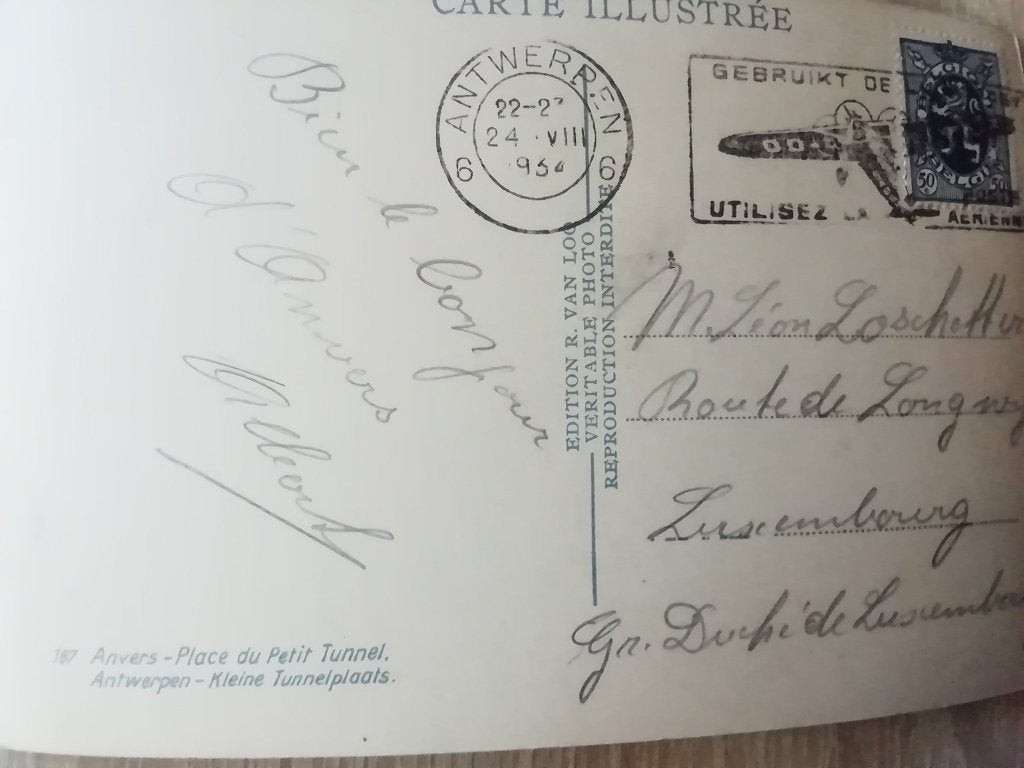 CARTE ILLUSTRÉE
ANTWERPEN
22-2
24 · VIII
193
6 6
GEBRUIKT DE
UTILISEZ LA AERIENN
50 50
BELGIE
Bien le bonjour
d'Anvers
EDITION R. VAN LOO
VERITABLE PHOTO
REPRODUCTION INTERDITE
M. Léon Loschetter
Route de Longwy
Luxembourg
Gr. Duché de Luxembou
167 Anvers - Place du Petit Tunnel.
Antwerpen - Kleine Tunnelplaats.